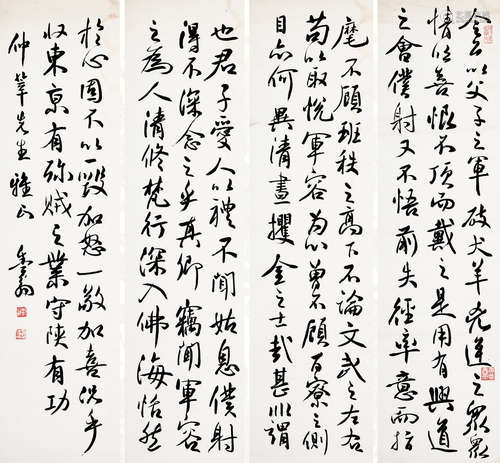 令公以父子之軍破犬羊兇逆之眾眾
情欣喜恨不頂而戴之是用有興道
之會僕射又不悟前失徑率意而指
麾不顧班秩之高下不論文武之左右
苟以取悅軍容為心曾不顧百寮之側
目亦何異清晝攫金之士哉甚非謂
也君子愛人以禮不聞姑息僕射
得不深念之乎真卿竊聞軍容
之為人清修梵行深入佛海恬然
於心固不以一毀加怒一敬加喜況乎
收東京有殄賊之業守陝有功
仲簞先生雅正